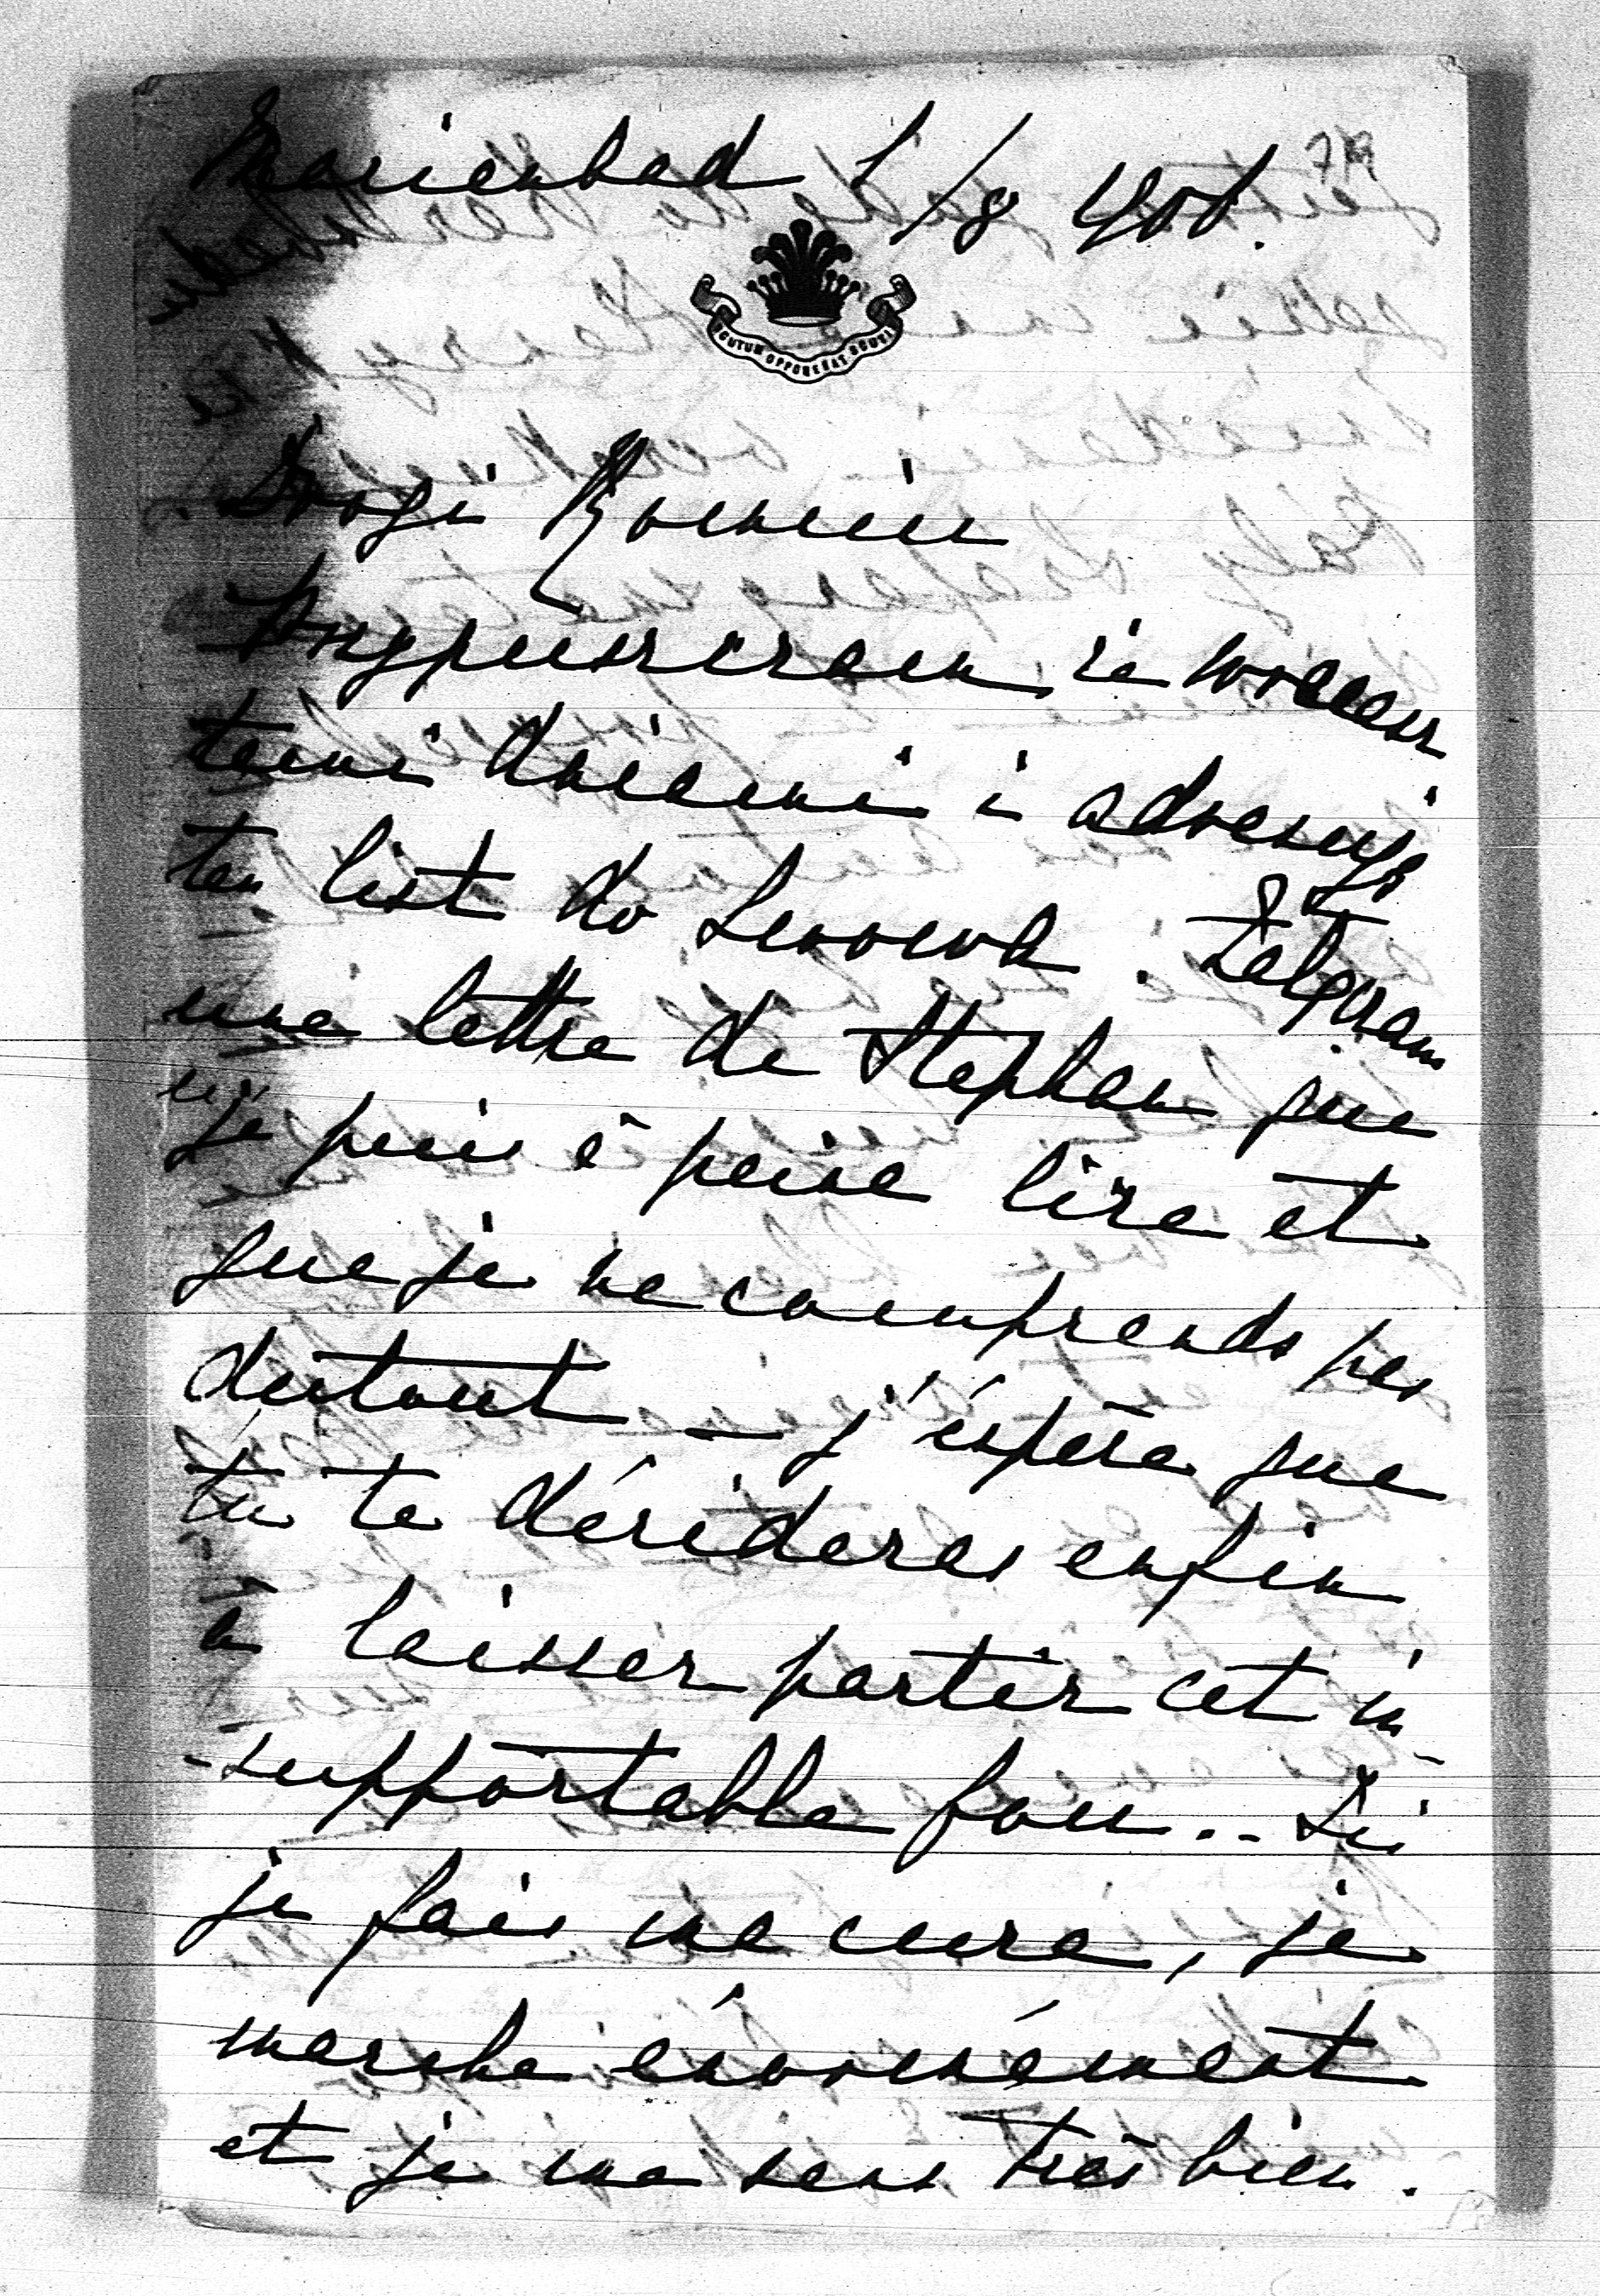 Marienbad 1/8 908.
719
SCUTUM OPPONEBAT SCUTIS
Drogi Romciu
Przypuszczam, że wracasz
temi dniami i adresuję
ten list do Lwowa. Załączam
une lettre de Stephan que
je puis à peine lire et
que je ne comprends pas
dutout — j'éspère que
tu te décideras enfin
à laisser partir cet in-
-supportable fou.. Ici
je fais ma cure, je
marche énormément
et je me sens très bien.